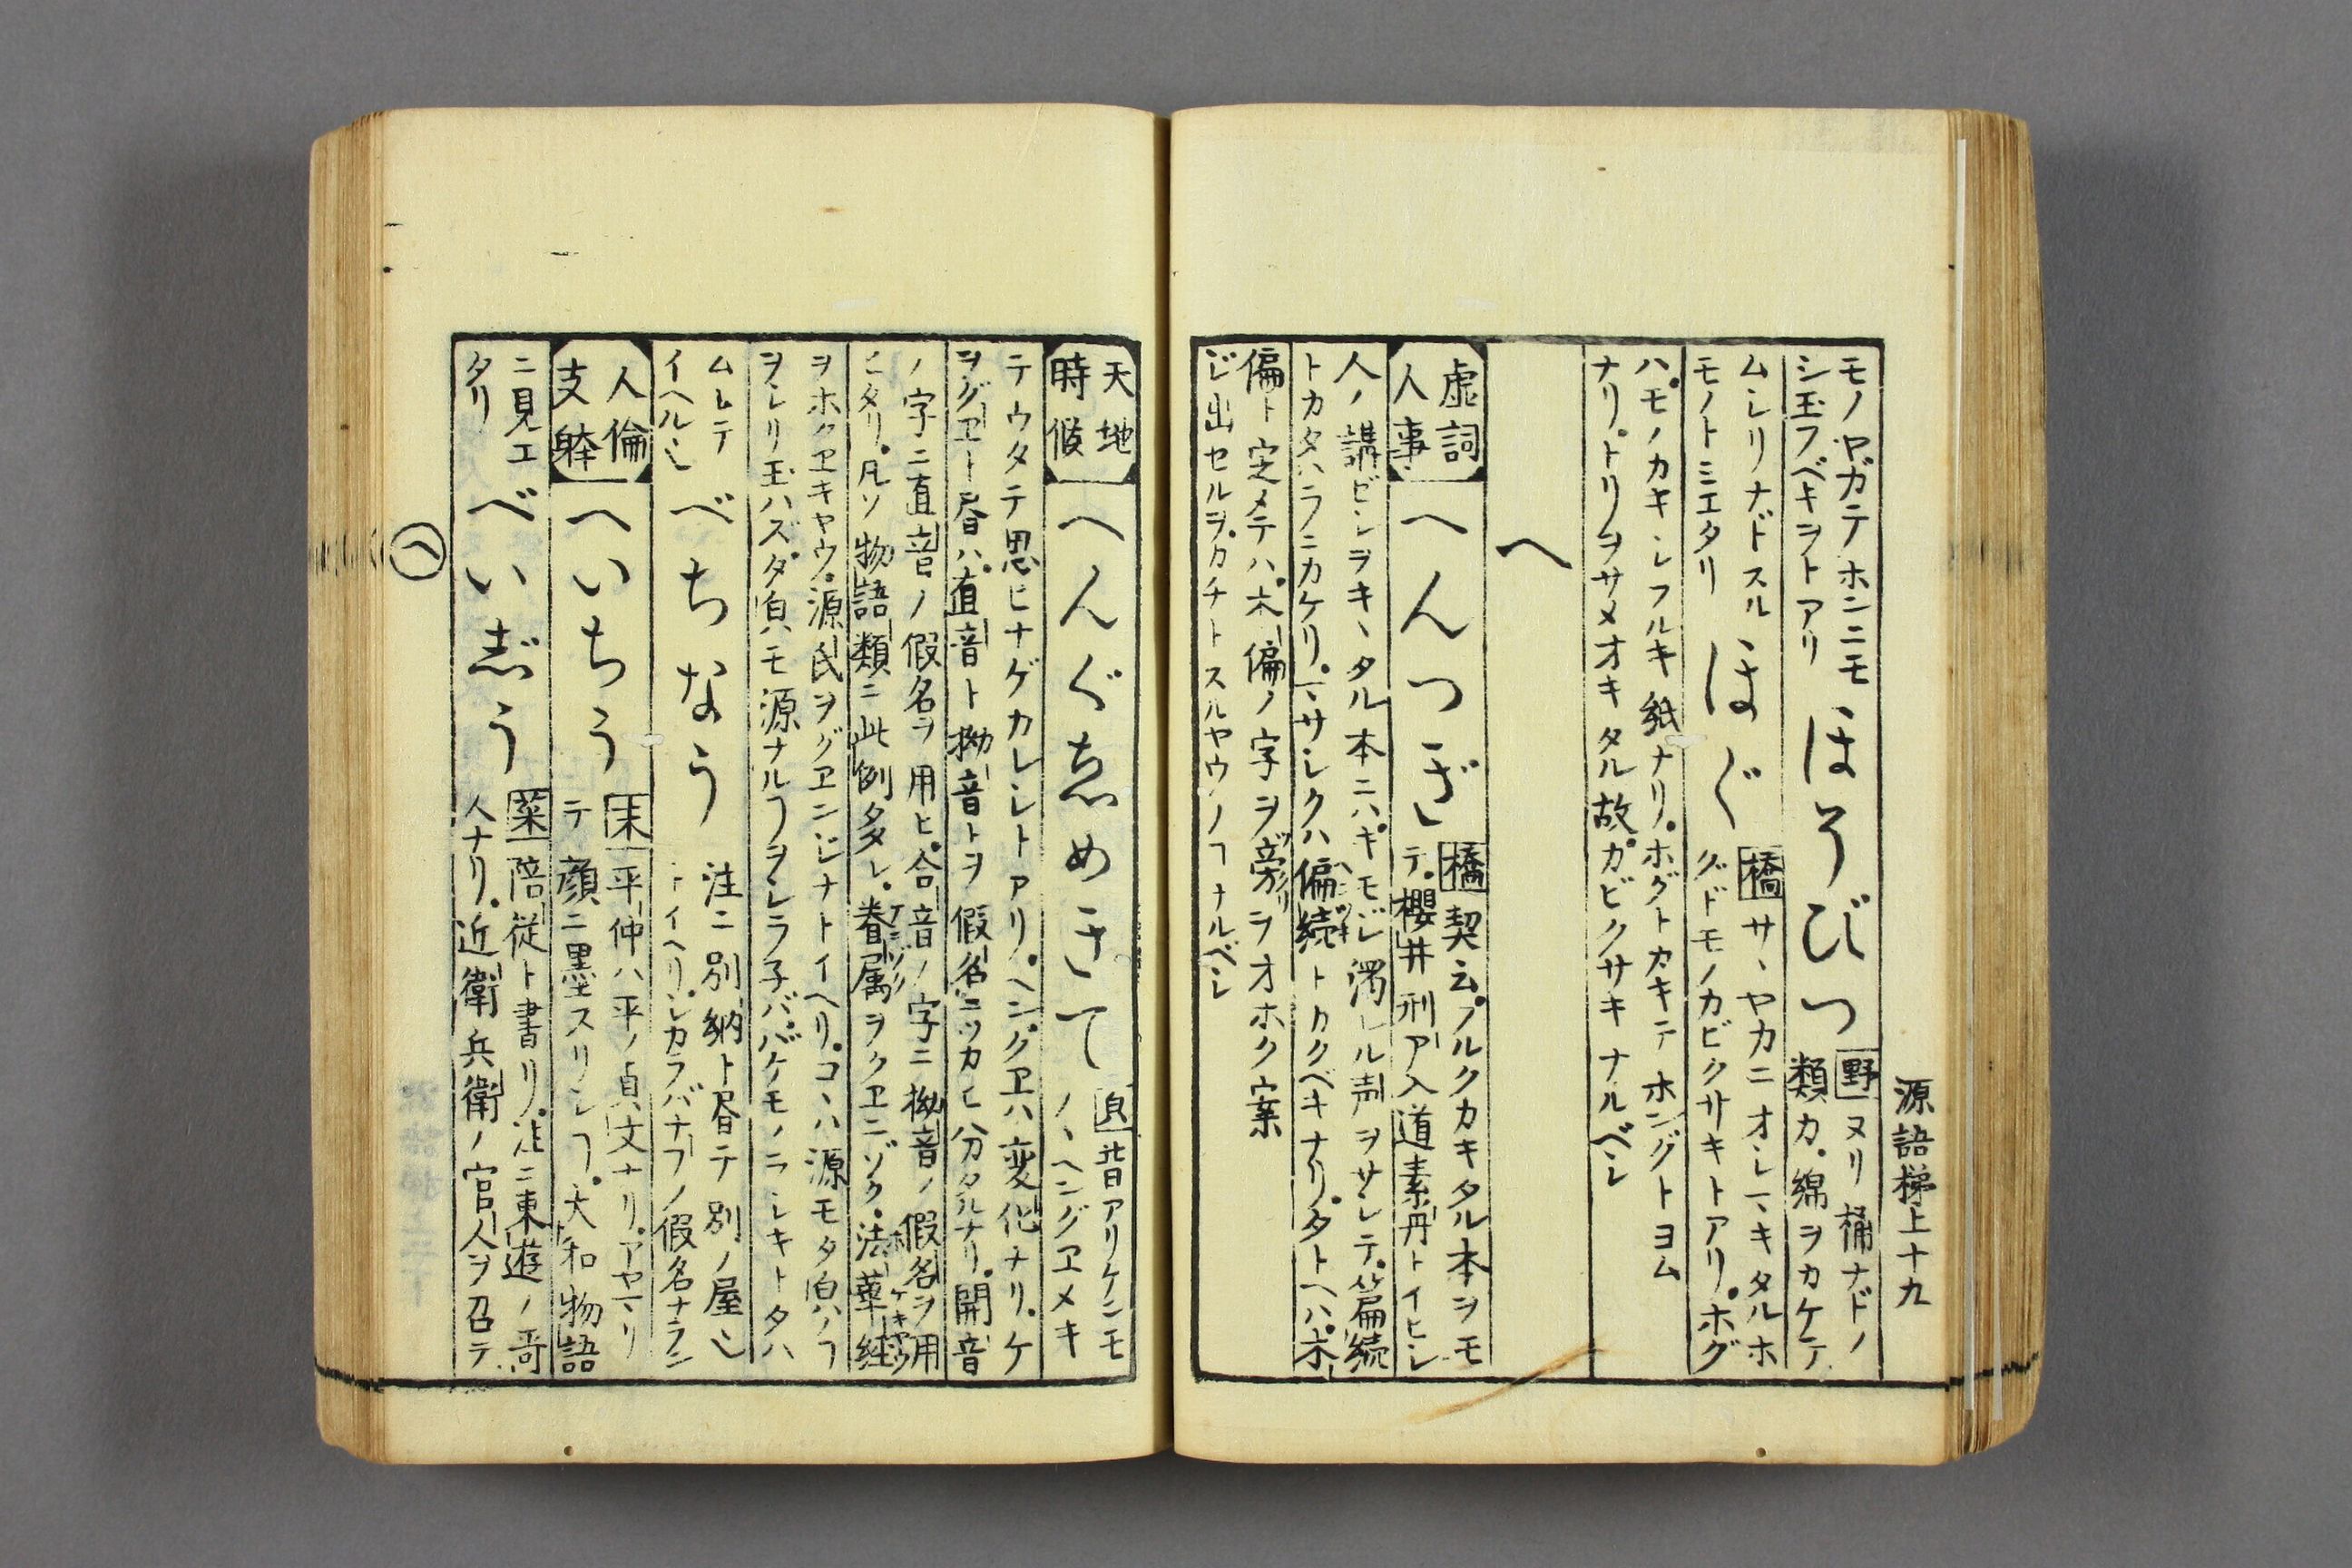 源語梯上十九
モノヤガテホンニモ
シ玉フベキヲトアリ
ほそびつ
野 ヌリ桶ナドノ
類カ。綿ヲカケテ
ムシリナドスル
モノトミエタリ
ほぐ
橋 サヽヤカニオシマキタルホ
グドモノカビクサキトアリ。ホグ
ハ。モノカキシフルキ紙ナリ。ホグトカキテホングトヨム
ナリ。トリヲサメオキタル故。カビクサキナルベシ
へ
虚詞
人事
へんつぎ
橋 契云。フルクカキタル本ヲモ
テ。櫻井刑ア入道素丹トイヒシ
人ノ講ビシヲキヽタル本ニハ。キモジ濁レル声ヲサシテ。篇続
トカタハラニカケリ。マサシクハ偏続トカクベキナリ。タトヘハ。木
偏ト定メテハ。木偏ノ字ヲ旁リヲオホク案
ジ出セルヲ。カチトスルヤウノヿナルベシ
天地
時候
へんぐゑめきて
昔アリケンモ
ノヽヘングヱメキ
テウタテ思ヒナゲカレシトアリ。ヘングヱハ変化ナリ。ケ
ヲグヱト昏ハ。直音ト拗音トヲ假名ニツカヒ分タルナリ。開音
ノ字ニ直音ノ假名ヲ用ヒ。合音ノ字ニ拗音ノ假名ヲ用
ヒタリ。凡ソ物語類ニ此例多シ。眷属ヲクヱニゾク。法華経
ヲホクヱキヤウ。源氏ヲグヱンジナトイヘリ。コヽハ源モタ㒵ノヿ
ヲシリ玉ハズ。タ㒵モ源ナルヿヲシラ子バ。バケモノラシキトタハ
ムレテ
イヘル也
べちなう
注ニ別納ト昏テ別ノ屋也
トイヘリ。シカラバナフノ假名ナラン
人倫
支躰
へいちう
末 平仲ハ平ノ貞文ナリ。アヤマリ
テ顔ニ墨スリシヿ。大和物語
ニ見エ
タリ
べいじう
菜 陪従ト書リ。注ニ東遊ノ哥
人ナリ。近衛兵衛ノ官人ヲ召テ
へ